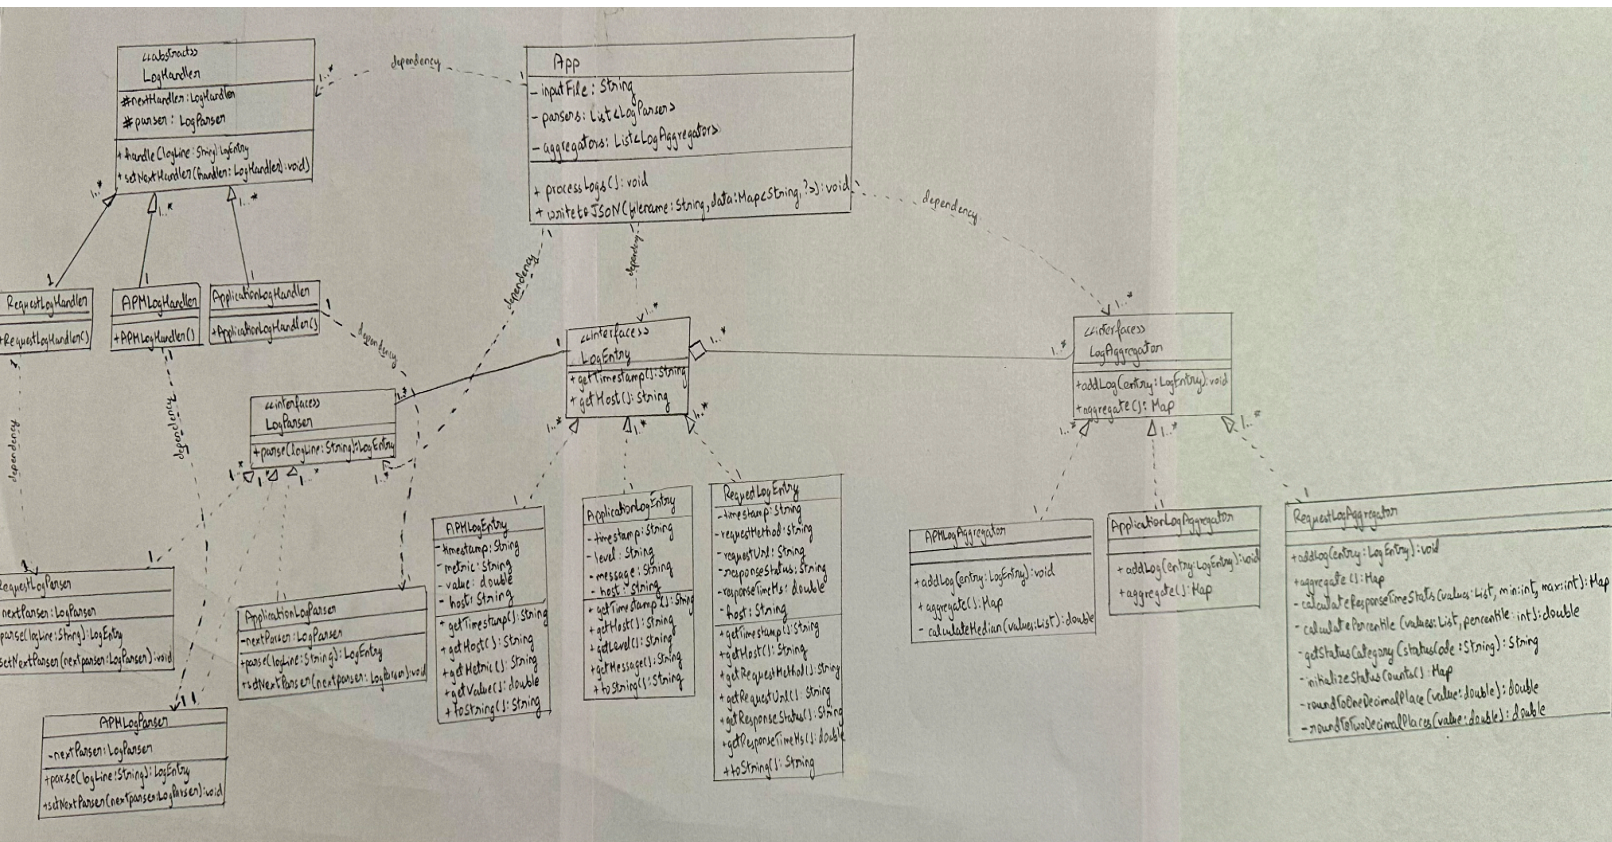 <<abstract>>
LogHandler
#nextHandler: LogHandler
#parser: LogParser
+ handle(logLine: String): LogEntry
+ setNextHandler(handler: LogHandler): void)
1..*
dependency
1
App
- inputFile: String
- parsers: List<LogParser>
- aggregators: List<LogAggregators>
+ processLogs(): void
+ writetoJSON(filename: String, data: Map<String, ?>): void
1..*
1..*
1..*
1
1
1
RequestLogHandler
+RequestLogHandler()
APMLogHandler
+APMLogHandler()
ApplicationLogHandler
+ApplicationLogHandler()
1
dependency
dependency
dependency
dependency
1..*
<<interface>>
LogEntry
+ getTimestamp(): String
+ getHost(): String
1
1..*
1..*
1..*
<<interface>>
LogAggregator
+addLog(entry: LogEntry): void
+aggregate(): Map
1..*
<<interface>>
LogParser
+parse(logLine: String): LogEntry
1..*
1..*
1..*
1..*
1..*
1..*
1..*
dependency
dependency
1
1
RequestLogParser
nextParser: LogParser
parse(logLine: String): LogEntry
setNextParser(nextparser: LogParser): void
ApplicationLogParser
-nextParser: LogParser
+parse(logLine: String): LogEntry
+setNextParser(nextparser: LogParser): void
1
APMLogParser
-nextParser: LogParser
+parse(logLine: String): LogEntry
+setNextParser(nextparser: LogParser): void
1
APMLogEntry
-timestamp: String
- metric: String
- value: double
- host: String
+ getTimestamp(): String
+ getHost(): String
+ getMetric(): String
+ getValue(): double
+ toString(): String
1
ApplicationLogEntry
-timestamp: String
- level: String
- message: String
- host: String
+ getTimestamp(): String
+getHost(): String
+getLevel(): String
+getMessage(): String
+ toString(): String
1
RequestLogEntry
-timestamp: String
-requestMethod: String
-requestUrl: String
-responseStatus: String
-responseTimeMs: double
-host: String
+getTimestamp(): String
+getHost(): String
+getRequestMethod(): String
+getRequestUrl(): String
+getResponseStatus(): String
+getResponseTimeMs(): double
+toString(): String
1
APMLogAggregator
+addLog(entry: LogEntry): void
+ aggregate(): Map
- calculateMedian(values: List): double
1
ApplicationLogAggregator
+ addLog(entry: LogEntry): void
+ aggregate(): Map
1
RequestLogAggregator
+addLog(entry: LogEntry): void
+aggregate(): Map
- calculateResponseTimeStats(values: List, min: int, max: int): Map
- calculatePercentile (values: List, percentile: int): double
-getStatusCategory (statusCode: String): String
-initializeStatusCounts(): Map
-roundToOneDecimalPlace (value: double): double
-roundToTwoDecimalPlaces(value: double): double